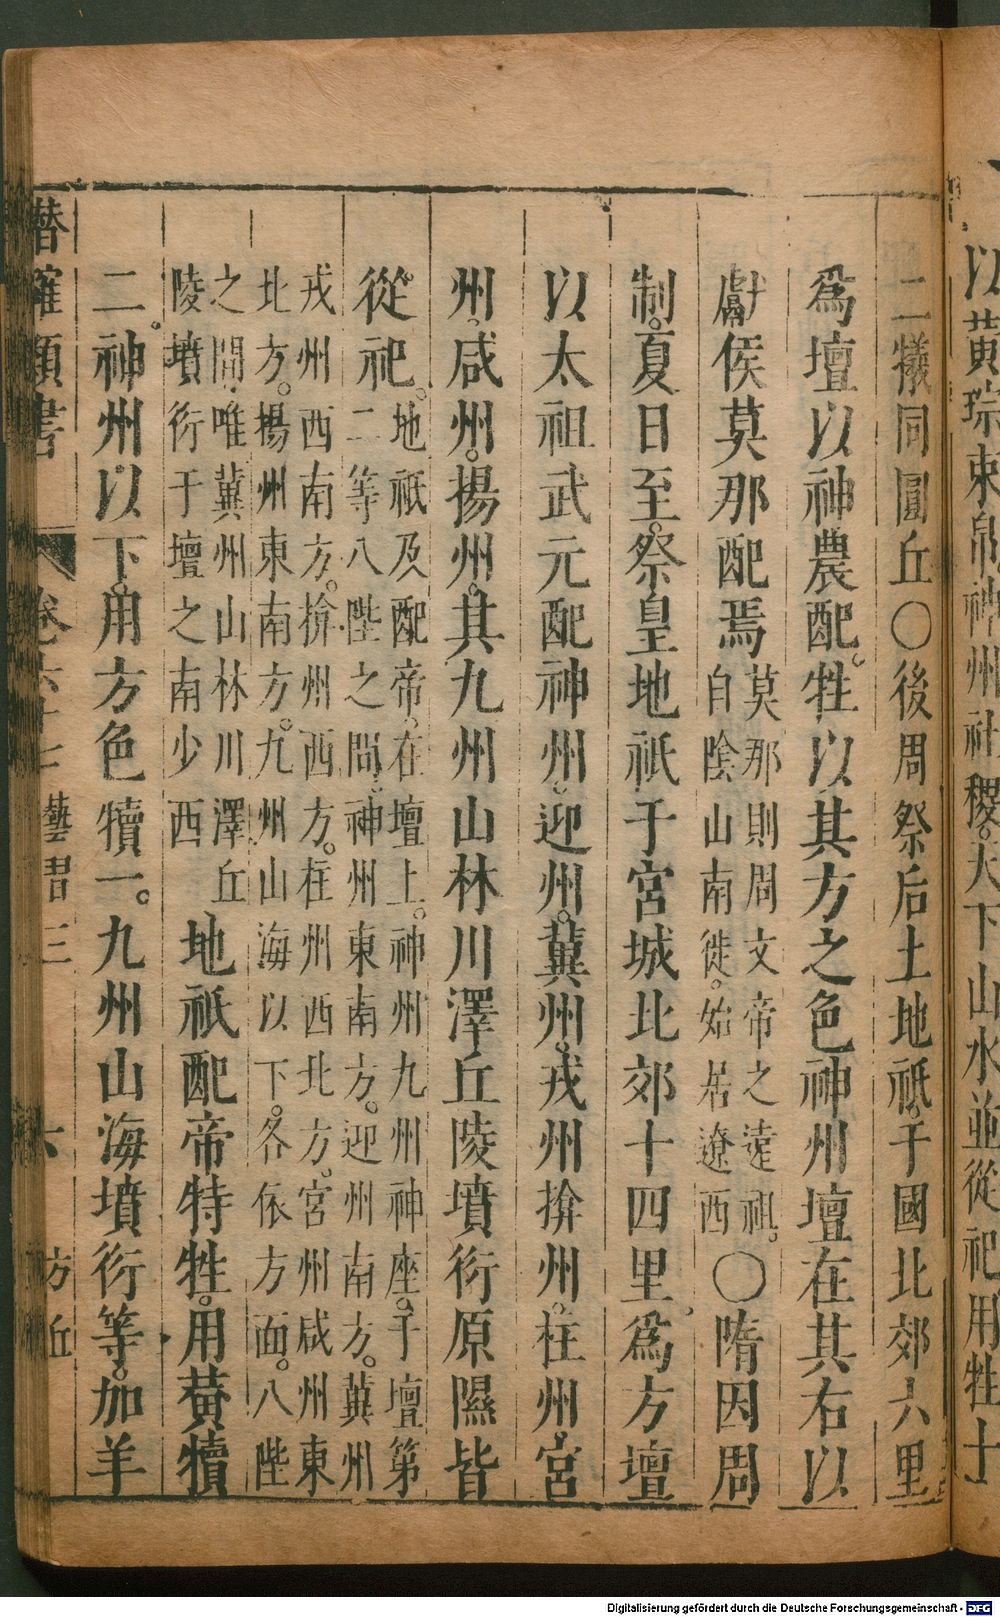 以黃琮束帛。神州社稷。天下山水並從祀用牲十
二犧同圓丘〇後周祭后土地祇。于國北郊六里
爲壇以神農配。牲以其方之色神州壇在其右以
獻侯莫那配焉莫那則周文帝之遠祖。自陰山南徙。始居遼西〇隋因周
制。夏日至。祭皇地祇于宮城北郊十四里爲方壇
以太祖武元配神州、迎州。冀州。戎州拚州。柱州、宮
州、咸州。揚州。其九州山林川澤丘陵墳衍原隰皆
從祀。地祇及配帝。在壇上。神州九州神座。于壇第
二等八陛之間、神州東南方。迎州南方。冀州
戎州西南方。拚州西方。柱州西北方。宮州咸州東
北方。揚州東南方。九州山海以下。各依方面。八陛
之間、唯冀州山林川澤丘
陵墳衍于壇之南少西
地祇配帝特牲。用黃犢
二。神州以下。用方色犢一。九州山海墳衍等。加羊
潛確類書 卷六十七 藝習三 六 方丘
Digitalisierung gefördert durch die Deutsche Forschungsgemeinschaft - DFG